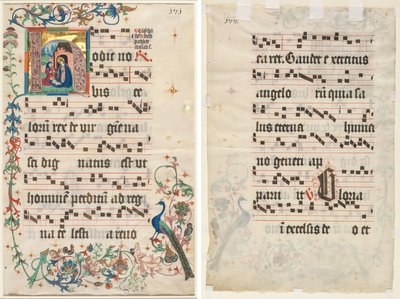 odie no
bis ce
lorū rex de virgīe na
sci dignatus est ut
hominē perditū ad reg
na celestia revo
caret Gaudet exercitus
angelorū quia sa
lus eterna huma
no generi ap
paruit Gloria
ī excelsis deo et